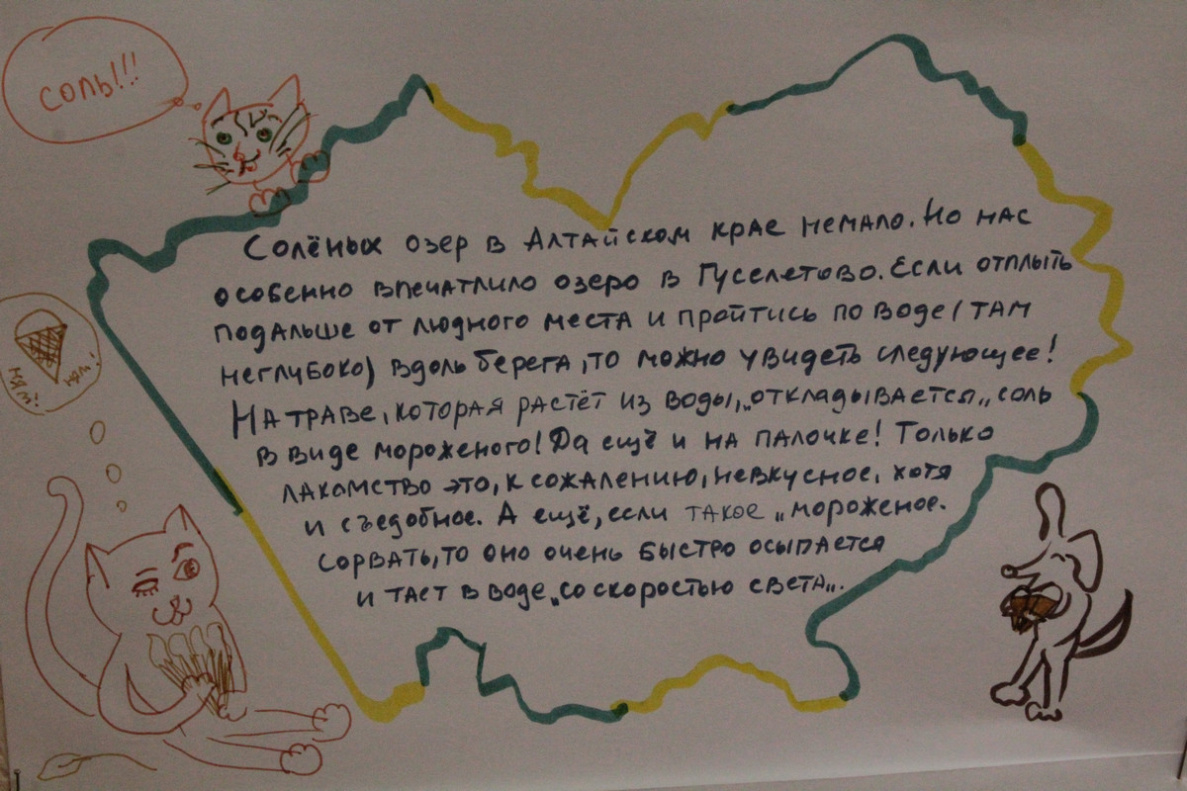 СОЛЬ!!!
Солёных озер в Алтайском крае немало. Но нас
особенно впечатлило озеро в Гуселетово. Если отплыть
подальше от людного места и пройтись по воде (там
неглубоко) вдоль берега, то можно увидеть следующее!
На траве, которая растёт из воды, „откладывается„ соль
в виде мороженого! Да ещё и на палочке! Только
лакомство это, к сожалению, невкусное, хотя
и съедобное. А ещё, если такое „мороженое„
сорвать, то оно очень быстро осыпается
и тает в воде „со скоростью света„.
ням!
ням!